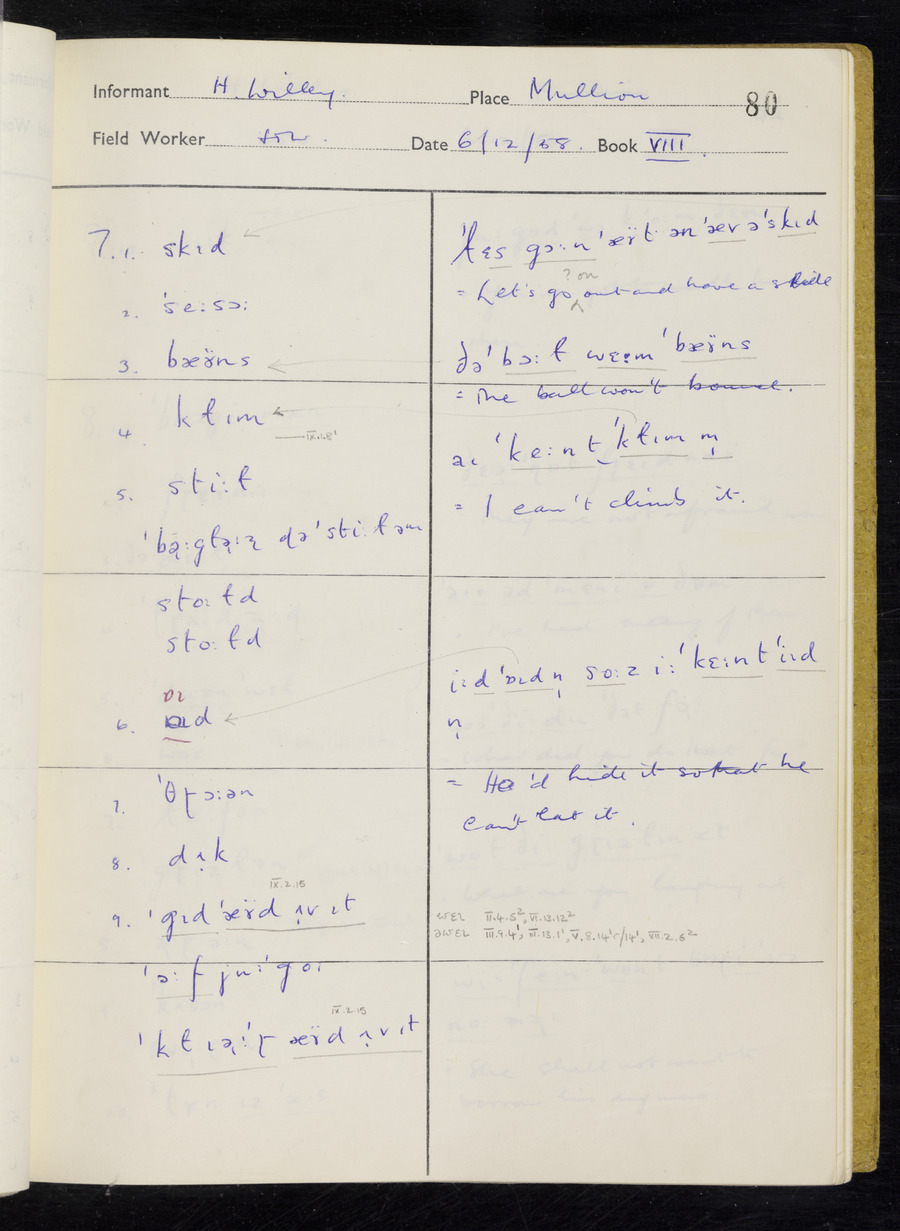 Informant H. Willey. Place Mullion 80
Field Worker Date 6/12/58. Book VIII.
7. 1. skɪd
2. ˈseːsɔː
3. bæʏ̈ns
4. kɫɪm
IX.1.8¹
5. stiːɫ
stoːɫd
stoːɫd
ɒɪ
6. d
7.
8. dʌ̣k
IX.2.15
9. ˈgɪd ˈæʏ̈d ʌ̣v ɪt
ˈɔːf jnːˈgoː
IX.2.15
æʏ̈d ʌ̣v ɪt
gɔːn ˈæʏ̈t ən ˈæv əˈskɪd
? on
= Let's go out and have a slide
ðəˈbɔːɫ wɛom ˈbæʏ̈ns
= The ball won't bounce.
aɪ ˈkeːnt ˈkɫɪm m̩
= I can't climb it.
iːd ˈɒɪd n̩ soːz iːˈkɛːnt ˈiːd
n̩
= He'd hide it so that he
can't eat it.
wɛɫ II.4.5², VI.13.12²
əwɛɫ III.9.4¹, VI.13.1¹, V.8.14¹r/14¹, VII.2.6²